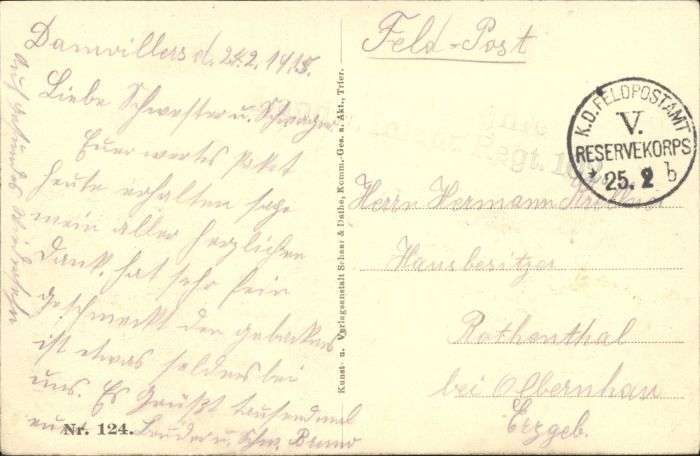 Damvillers d. 25.2.1915.
Liebe Schwester u. Schwager.
Euer wertes Paket
heute erhalten sage
mein aller herzlichen
Dank. hat sehr fein
geschmeckt den gebacknes
ist etwas seldens bei
uns. Es Grüßt tausendmal
euer Bruder u. Schw. Bruno
Auf gesundes Wiedersehn
Nr. 124.
Kunst- u. Verlagsanstalt Schaar & Dathe, Komm.-Ges. a. Akt., Trier.
Feld-Post
K.D. FELDPOSTAMT
V.
RESERVEKORPS
* 25. 2 b
Herrn Hermann
Hausbesitzer
Rothenthal
bei Olbernhau
Erzgeb.